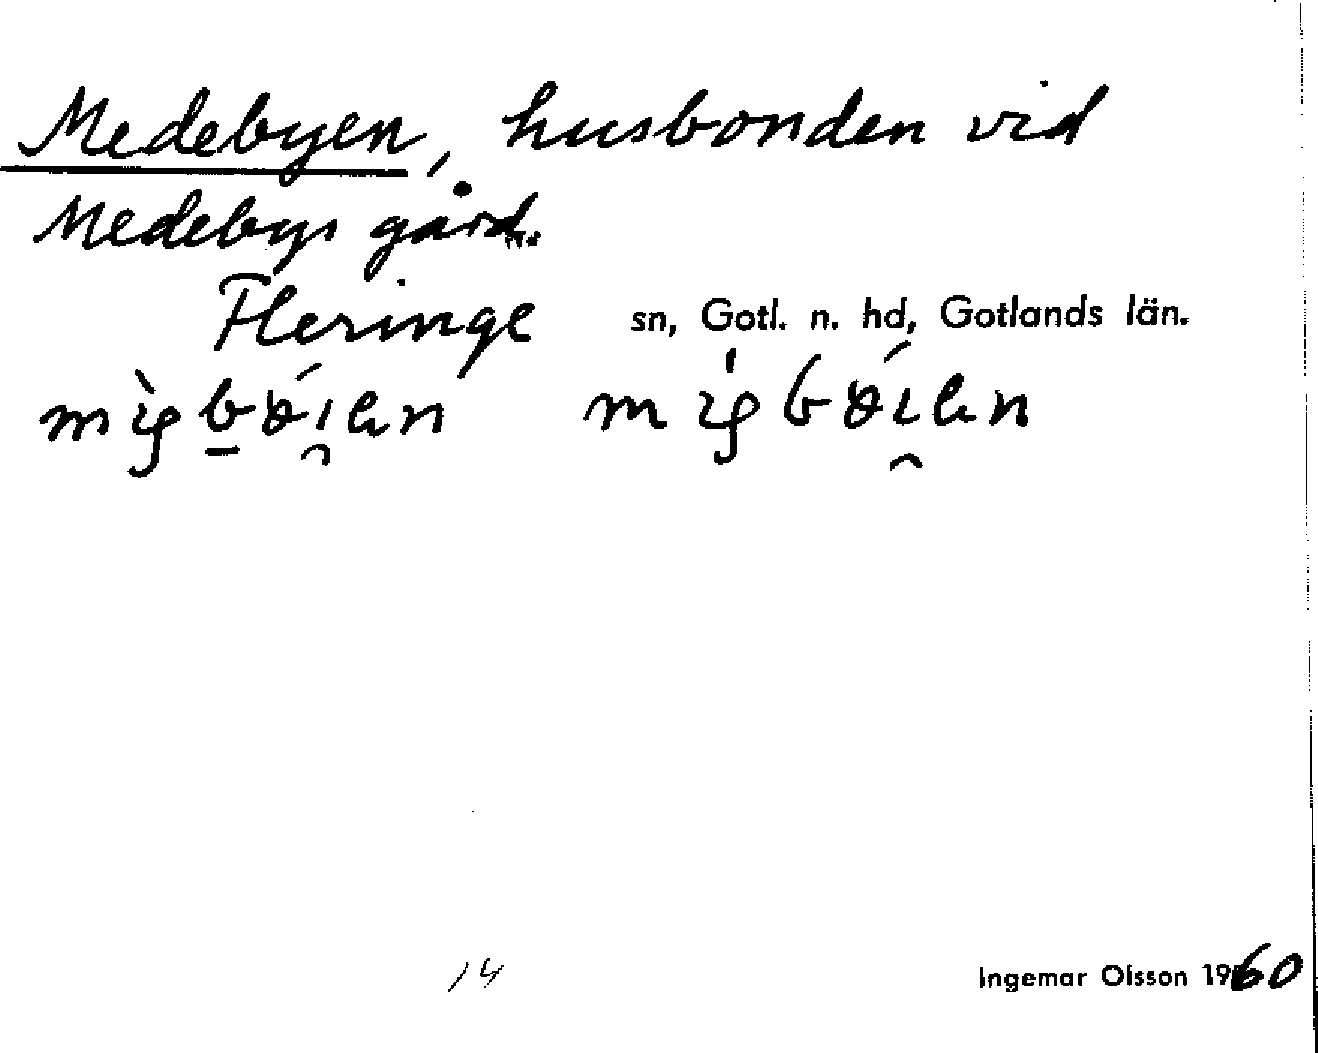 Medebyen, husbonden vid
Medebys gård.
Fleringe sn, Gotl. n. hd, Gotlands län.
14 Ingemar Olsson 1960